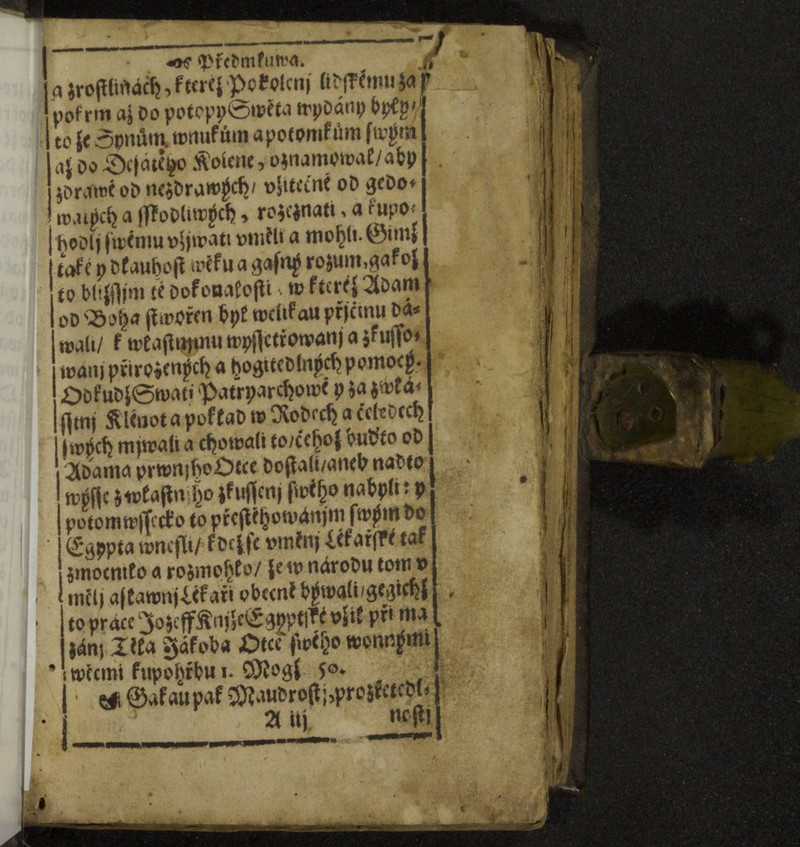 Předmluwa.
a zrostlinách, kteréž Pokolenj lidskému za
pokrm až do potopy Swěta wydány byly,
to že Synům, wnukům a potomkům swým
až do Desátého Kolene, oznamowal / aby
zdrawé od nezdrawých / vžitečné od gedo-
watých a sskodliwých, rozeznati, a k upo-
hodlj swému vžjwati vměli a mohli. Gimž
také y dlauhost wěku a gasný rozum, gakož
to bližssjm té dokonalosti w kteréž Adam
od Boha stwořen byl welikau přjčinu dá-
wali / k wlastnjmu wyssetřowanj a zkusso-
wánj přirozených a hogitedlných pomocý.
Odkudž Swatj Patryarchowé y za zwlá-
sstnj Klénot a poklad w Rodech a čeledech
swých mjwali a chowali to / čehož buďto od
Adama prwnjho Otce dostali / aneb nadto
wýsse z wlastnjho zkussenj swého nabyli: y
potom wssecko to přestěhowánjm swým do
Egypta wnesli / kdežse vměnj Lékařské tak
zmocnilo a rozmohlo / že w národu tom v
mělj a slawnj Lékaři obecně býwali / gegichž
to práce Jozeff Knjže Egyptské vžil při ma
zánj Těla Jákoba Otce swého wonnými
wěcmi ku pohřbu 1. Mogž 50.
Gakau pak Maudrostj, prozřetedl-
A iij nostj